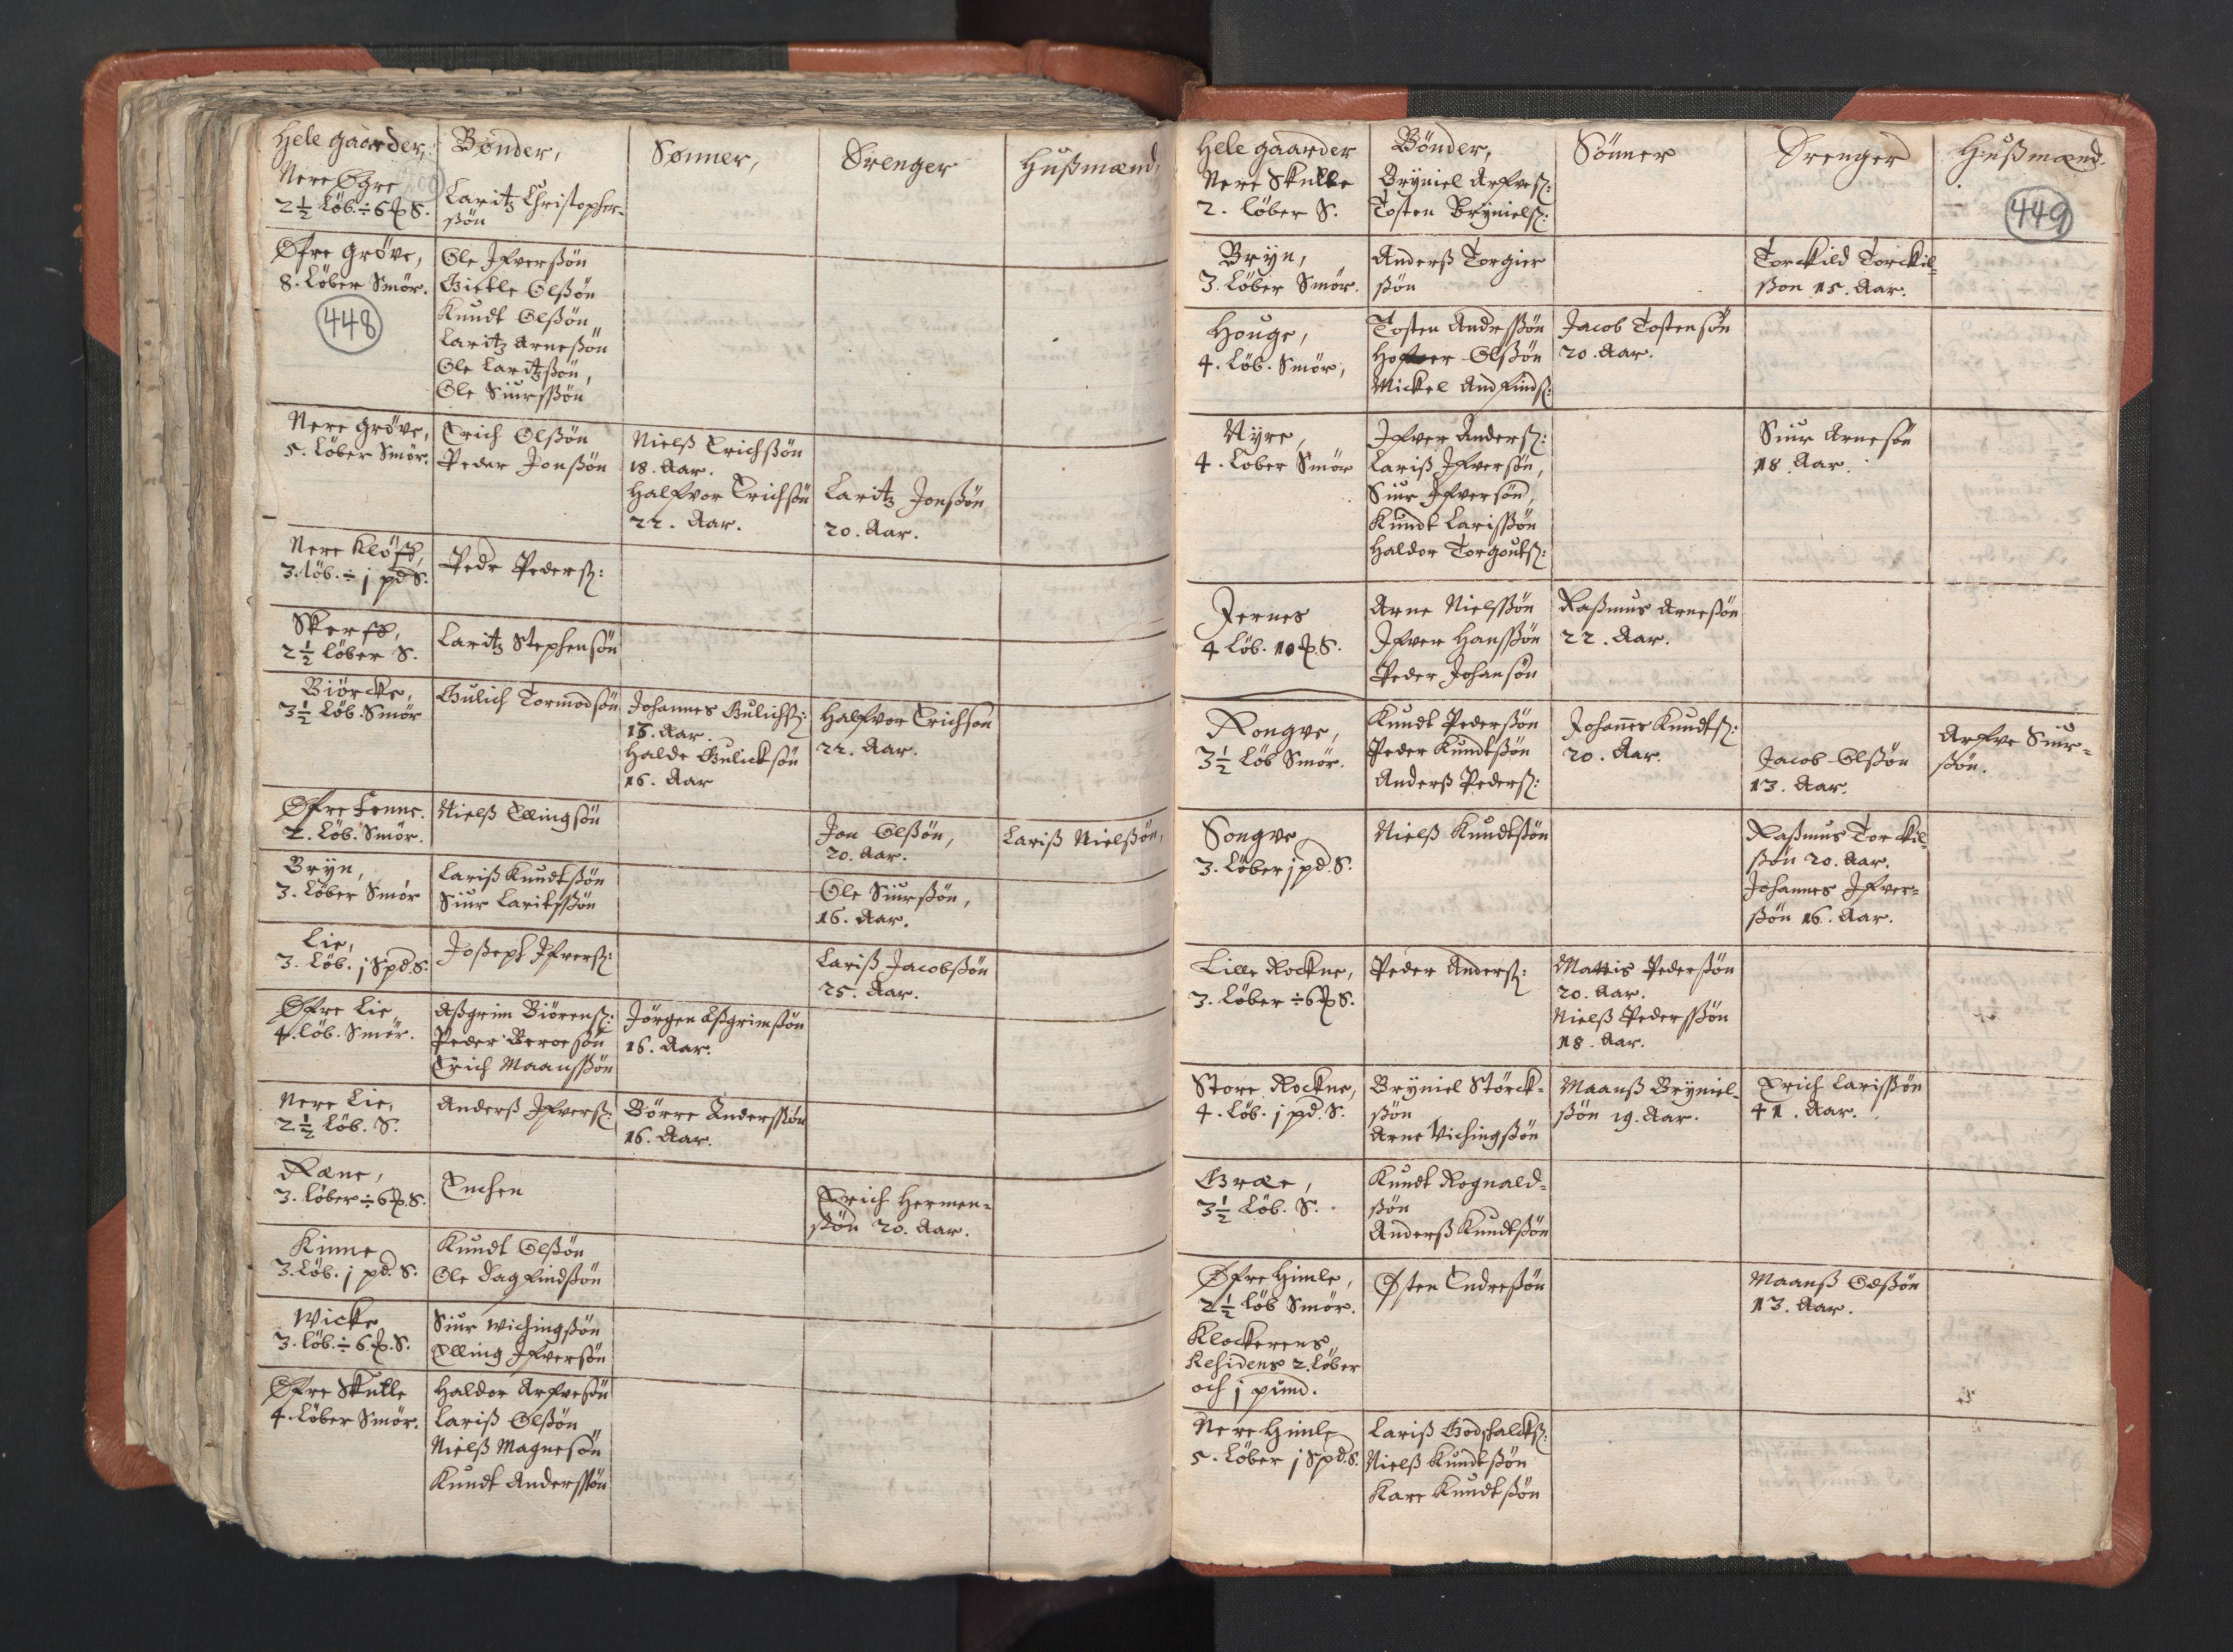 Hele gaarder, Bønder, Sønner, Drenger Hußmænd,
Nere Øgre
2½ Løb. ÷ 6 ℔ S.
Laritz Christopher-
ßøn
Øfre Grøve,
8. Løber Smör.
448
Ole Jfverßøn
Gietle Olßøn
Knudt Olßøn
Laritz Arneßøn
Ole Laritzßøn,
Ole Siurßßøn
Nere Grøve,
5. Løber Smör.
Erich Olßøn
Peder Jonßøn
Nielß Erichßøn
18. Aar.
Halfvor Erichßøn
22. Aar.
Laritz Jonßøn
20. Aar.
Nere Kløfs,
3. Løb. ÷ j pd S.
Pedr Peders:
Skerfs,
2½ Løber S.
Laritz Stephensøn
Biørcke,
3½ Løb. Smör
Gulich Tormodsøn
Johannes Gulichs:
13. Aar.
Halde Gulicksøn
16. Aar
Halfvor Erichsøn
22. Aar.
Øfre Fenne.
2. Løb. Smör.
Nielß Ellingsøn
Jon Olßøn,
20. Aar.
Lariß Nielßøn,
Bryn,
3. Løber Smör
Lariß Knudtßøn
Siur Laritsßøn
Ole Siurßøn,
16. Aar.
Lie,
3. Løb. j Spd. S:
Joßeph Jfvers:
Lariß Jacobßøn
25. Aar.
Øfre Lie,
4. Løb. Smör.
Aßgrim Biörens:
Peder Beroesøn
Erich Maanßßøn
Jörgen Aßgrimßøn
16. Aar.
Nere Lie,
2½ Løb. S.
Anderß Jfvers:
Börre Anderßøn
16. Aar.
Rene,
3. Løber ÷ 6 ℔. S.
Enchen
Erich Hermen-
ßøn 20. Aar.
Kinne
3. Løb. j pd. S.
Knudt Olßøn
Ole Dagfindßøn
Wicke
3. Løb. ÷ 6. ℔. S.
Siur Wichingßøn
Elling Jfversøn
Øfre Skulle
4. Løber Smör.
Haldor Arfvesøn
Lariß Olßøn
Nielß Magnesøn
Knudt Anderßøn
Hele gaarder Bönder, Sönner Drenger Hußmænd.
Nere Skulle
2. Løber S.
Bryniel Arfves:
Tosten Bryniels:
449
Bryn,
3. Løber Smör.
Anderß Torgier
ßøn
Torckild Torckil-
ßon 15. Aar.
Houge,
4. Løb. Smör,
Tosten Andrßøn
Olßøn
Mickel Andfinds:
Jacob Tostensøn
20. Aar.
Nyre,
4. Løber Smör
Jfver Anders:
Lariß Jfversøn,
Siur Jfversøn,
Knudt Larißøn
Haldor Torgouts:
Siur Arnesøn
18. Aar.
Jernes
4 Løb. 10 ℔. S.
Arne Nielßøn
Jfver Hanßøn
Peder Johansøn
Raßmus Arneßøn
22. Aar.
Rongve,
3½ Løb Smör.
Knudt Pederßøn
Peder Knudtßøn
Anderß Peders:
Johañes Knudts:
20. Aar.
Jacob Olßøn
13. Aar.
Arfve Siur-
ßøn.
Songve
3. Løber j pd. S.
Nielß Knudtßøn
Raßmus Torckil-
ßøn 20. Aar.
Johannes Jfver-
ßøn 16. Aar.
Lille Rockne,
3. Løber ÷ 6 ℔ S.
Peder Anders:
Mattis Pederßøn
20. Aar.
Nielß Pederßøn
18. Aar.
Store Rockne,
4. Løb. j pd. S.
Bryniel Störck-
ßøn
Arne Vichingßøn
Maanß Bryniel-
ßøn 19. Aar.
Erich Larißøn
41. Aar.
Græe,
3½ Løb. S.
Knudt Rognald-
ßøn
Anderß Knudtßøn
Øfre Himle,
2½ Løb Smör.
Klockerens
Residens 2. Løber
och j pund.
Østen Endreßøn
Maanß Odßøn
13. Aar.
Nere Himle
5. Løber j Spd. S.
Lariß Godschalcks:
Nielß Knudtßøn
Kare Knudtßøn